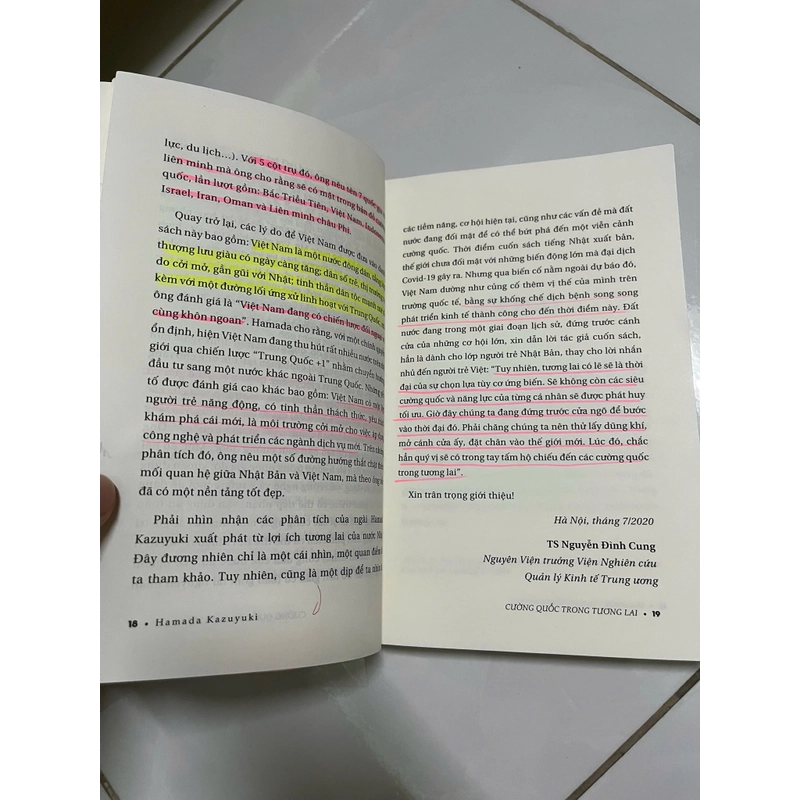 lực, du lịch…). Với 5 cột trụ đó, ông nêu tên 7 quốc gia
liên minh mà ông cho rằng sẽ có mặt trong bản đồ cường
quốc, lần lượt gồm: Bắc Triều Tiên, Việt Nam,
Israel, Iran, Oman và Liên minh châu Phi.
Quay trở lại, các lý do để Việt Nam được đưa vào
sách này bao gồm: Việt Nam là một nước đông dân,
thượng lưu giàu có ngày càng tăng; dân số trẻ, thị trường
do cởi mở, gần gũi với Nhật; tinh thần dân tộc mạnh
kèm với một đường lối ứng xử linh hoạt với Trung Quốc
ông đánh giá là "Việt Nam đang có chiến lược đối ngoại
cùng khôn ngoan". Hamada cho rằng, với một chính
ổn định, hiện Việt Nam đang thu hút rất nhiều nước trên
giới qua chiến lược "Trung Quốc +1" nhằm chuyển
đầu tư sang một nước khác ngoài Trung Quốc. Những
tố được đánh giá cao khác bao gồm: Việt Nam có
người trẻ năng động, có tinh thần thách thức, yêu
khám phá cái mới, là môi trường cởi mở cho việc
công nghệ và phát triển các ngành dịch vụ mới. Trên
phân tích đó, ông nêu một số đường hướng thắt chặt
mối quan hệ giữa Nhật Bản và Việt Nam, mà theo ông
đã có một nền tảng tốt đẹp.
Phải nhìn nhận các phân tích của ngài
Kazuyuki xuất phát từ lợi ích tương lai của nước
Đây đương nhiên chỉ là một cái nhìn, một quan điểm
ta tham khảo. Tuy nhiên, cũng là một dịp để ta
18 • Hamada Kazuyuki
các tiềm năng, cơ hội hiện tại, cũng như các vấn đề mà đất
nước đang đối mặt để có thể bứt phá đến một viễn cảnh
cường quốc. Thời điểm cuốn sách tiếng Nhật xuất bản,
thế giới chưa đối mặt với những biến động lớn mà đại dịch
Covid-19 gây ra. Nhưng qua biến cố nằm ngoài dự báo đó,
Việt Nam dường như củng cố thêm vị thế của mình trên
trường quốc tế, bằng sự khống chế dịch bệnh song song
phát triển kinh tế thành công cho đến thời điểm này. Đất
nước đang trong một giai đoạn lịch sử, đứng trước cánh
cửa của những cơ hội lớn, xin dẫn lời tác giả cuốn sách,
hẳn là dành cho lớp người trẻ Nhật Bản, thay cho lời nhắn
nhủ đến người trẻ Việt: "Tuy nhiên, tương lai có lẽ sẽ là thời
đại của sự chọn lựa tùy cơ ứng biến. Sẽ không còn các siêu
cường quốc và năng lực của từng cá nhân sẽ được phát huy
tối ưu. Giờ đây chúng ta đang đứng trước cửa ngõ để bước
vào thời đại đó. Phải chăng chúng ta nên thử lấy dũng khí,
mở cánh cửa ấy, đặt chân vào thế giới mới. Lúc đó, chắc
hẳn quý vị sẽ có trong tay tấm hộ chiếu đến các cường quốc
trong tương lai".
Xin trân trọng giới thiệu!
Hà Nội, tháng 7/2020
TS Nguyễn Đình Cung
Nguyên Viện trưởng Viện Nghiên cứu
Quản lý Kinh tế Trung ương
CƯỜNG QUỐC TRONG TƯƠNG LAI • 19